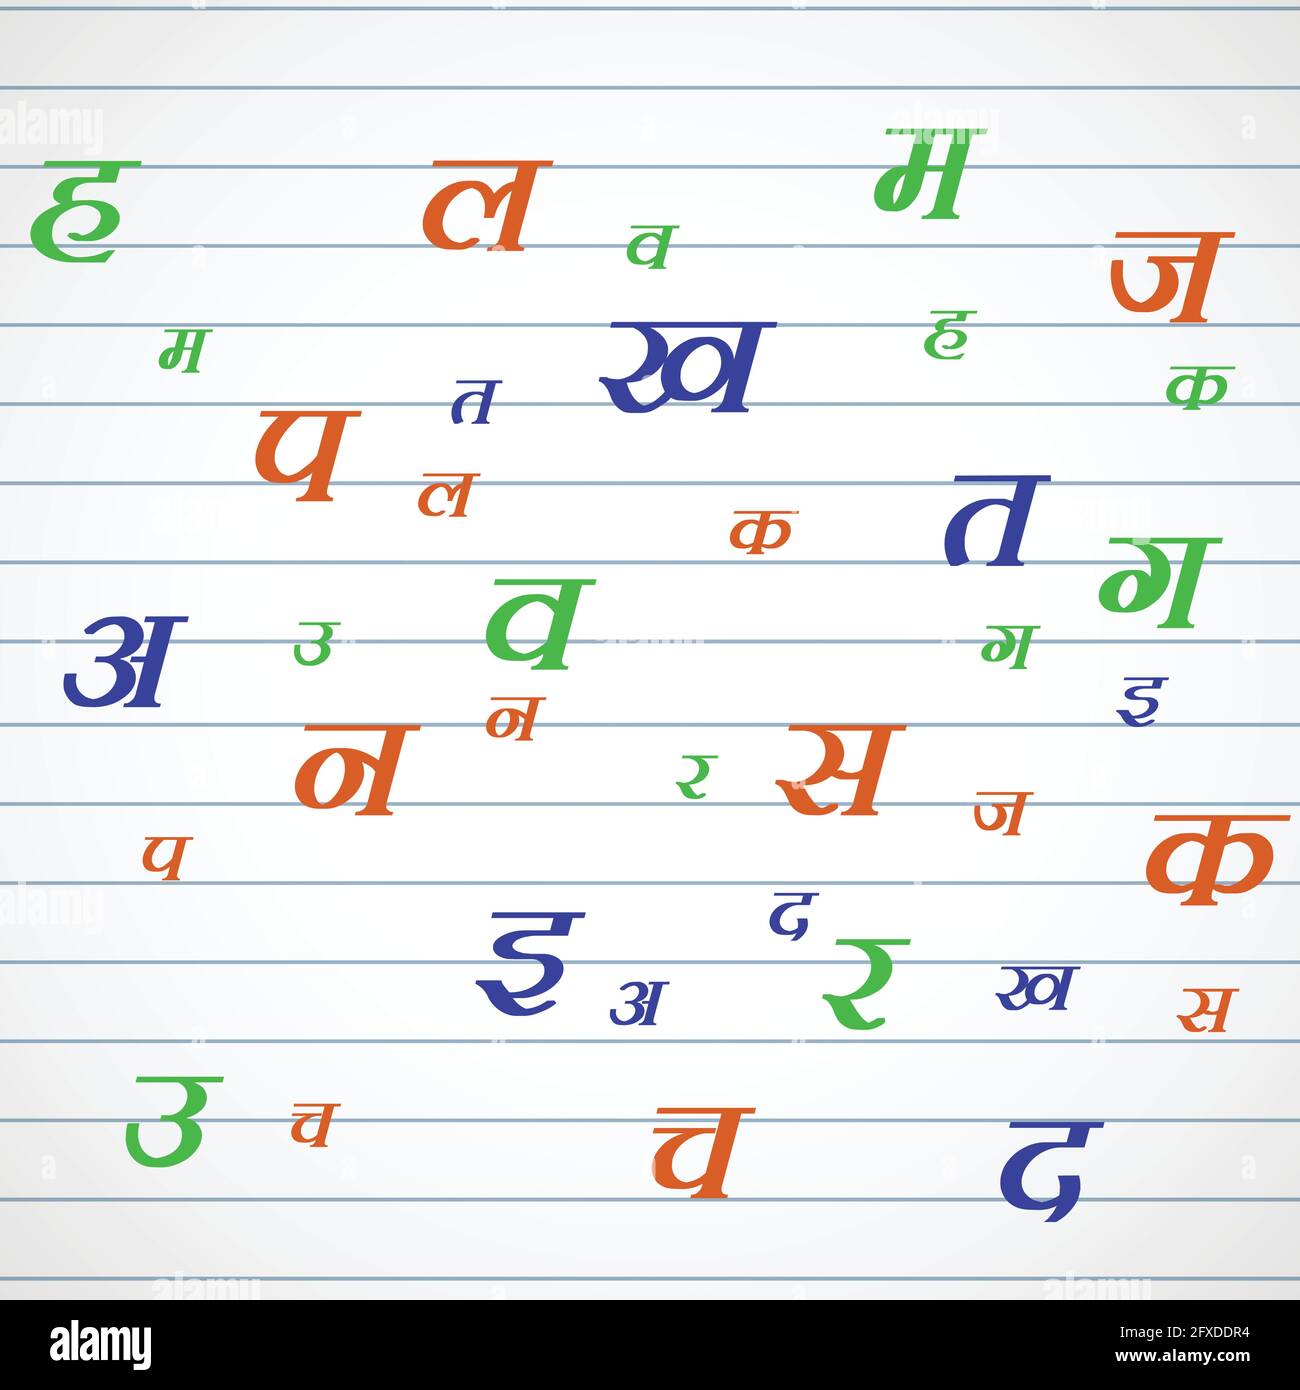 ह ल म
व ज
म ख ह
त क
प ल
क त ग
अ उ व ग
न इ
न र स ज क
प
इ अ द र ख स
उ च च द
alamy
Image ID: 2FXDDR4
www.alamy.com